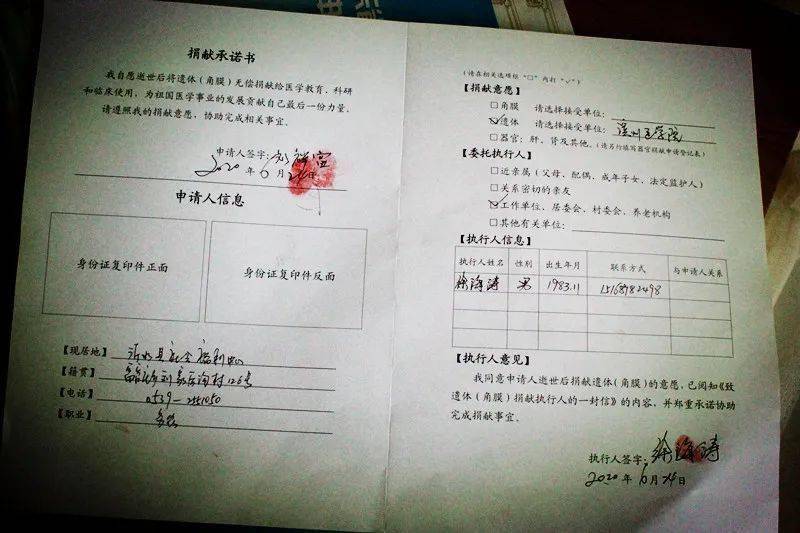 捐献承诺书
我自愿逝世后将遗体（角膜）无偿捐献给医学教育、科研
和临床使用，为祖国医学事业的发展贡献自己最后一份力量。
请遵照我的捐献意愿，协助完成相关事宜。
申请人签字：
2020年6月24日
申请人信息
身份证复印件正面
身份证复印件反面
【现居地】社会福利中心
【籍贯】
【电话】0539-2251050
【职业】
（请在相关选项框“□”内打“√”）
【捐献意愿】
□角膜 请选择接受单位：
☑遗体 请选择接受单位：滨州医学院
□器官：肝、肾及其他。（请另行填写器官捐献申请登记表）
【委托执行人】
□近亲属（父母、配偶、成年子女、法定监护人）
□关系密切的亲友
☑工作单位、居委会、村委会、养老机构
□其他有关单位：
【执行人信息】
执行人姓名 性别 出生年月 联系方式 与申请人关系
徐海涛 男 1983.11 15168982498
【执行人意见】
我同意申请人逝世后捐献遗体（角膜）的意愿，已阅知《致
遗体（角膜）捐献执行人的一封信》的内容，并郑重承诺协助
完成捐献事宜。
执行人签字：徐海涛
2020年6月24日